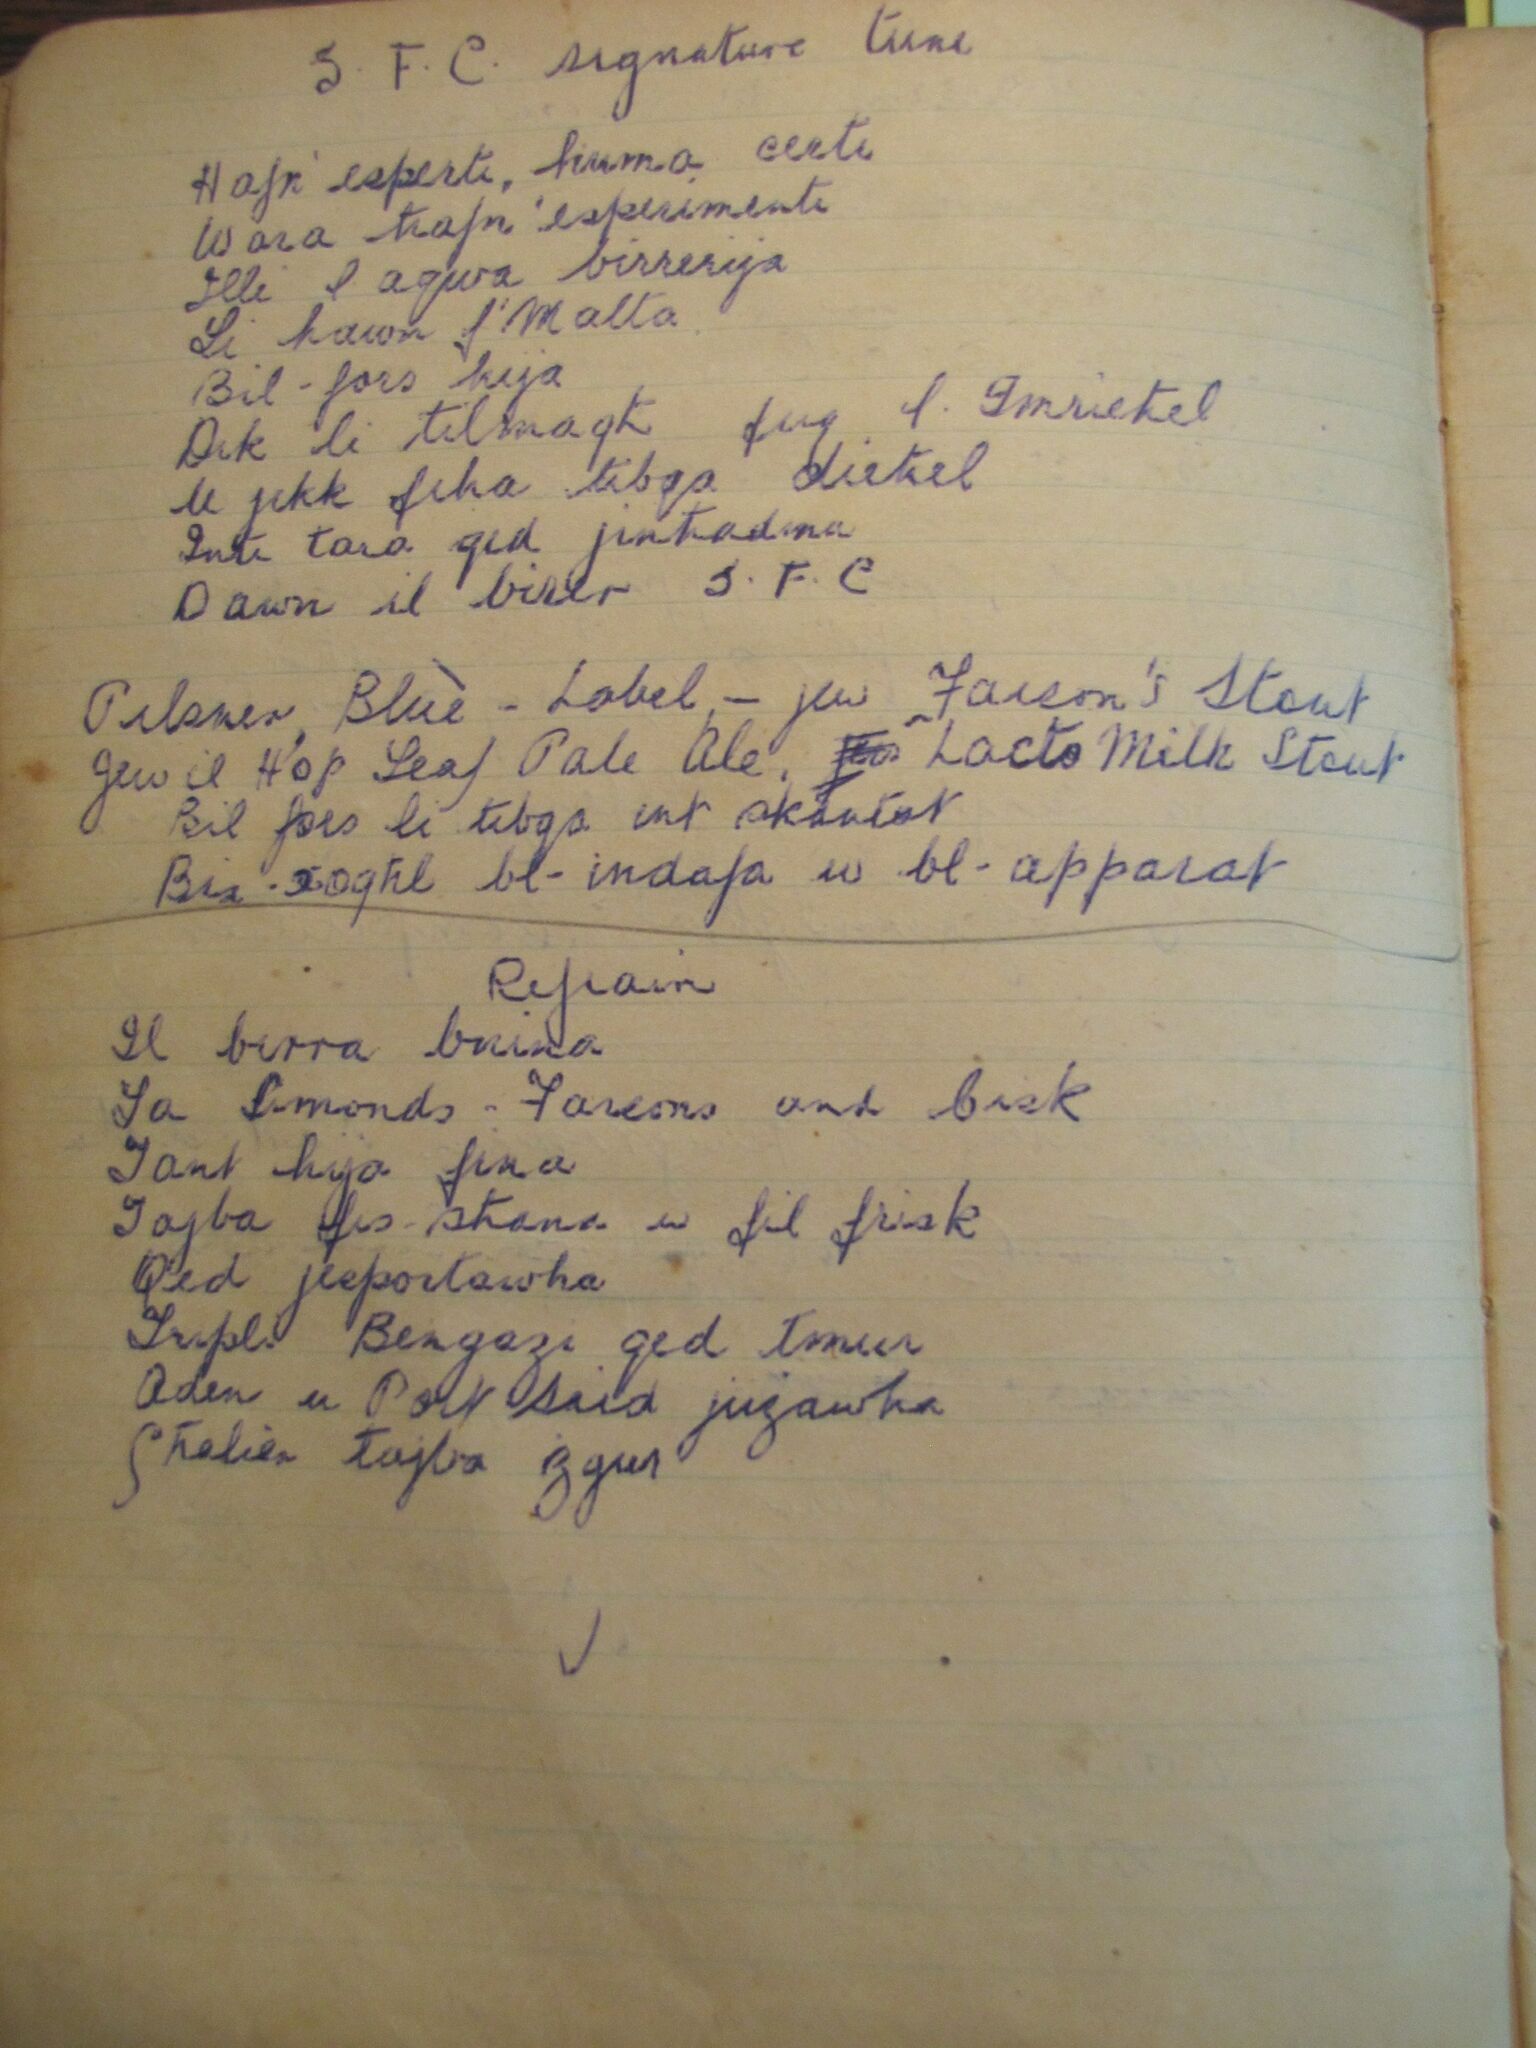 S. F. C. signature tune
Hafn' esperti, huma certi
Wara hafn' esperimenti
Illi l aqwa birrerija
Li hawn f'Malta
Bil-fors hija
Dik li tilmagh fuq l. Imriehel
U jekk fiha tibqa diehel
Inti tara qed jinhadmu
Dawn il birer S. F. C
Pilsner, Blue - Label, - jew Farson's Stout
Jew il Hop Leaf Pale Ale, Lacto Milk Stout
Bil fors li tibqa int skantat
Bix-xoghl bl-indafa u bl-apparat
Refrain
Il birra bnina
Ta Simonds-Farsons and Cisk
Tant hija fina
Tajba fis-shana u fil frisk
Qed jesportawha
Tripli Bengazi qed tmur
Aden u Port Said jużawha
Ghaliex tajba żgur